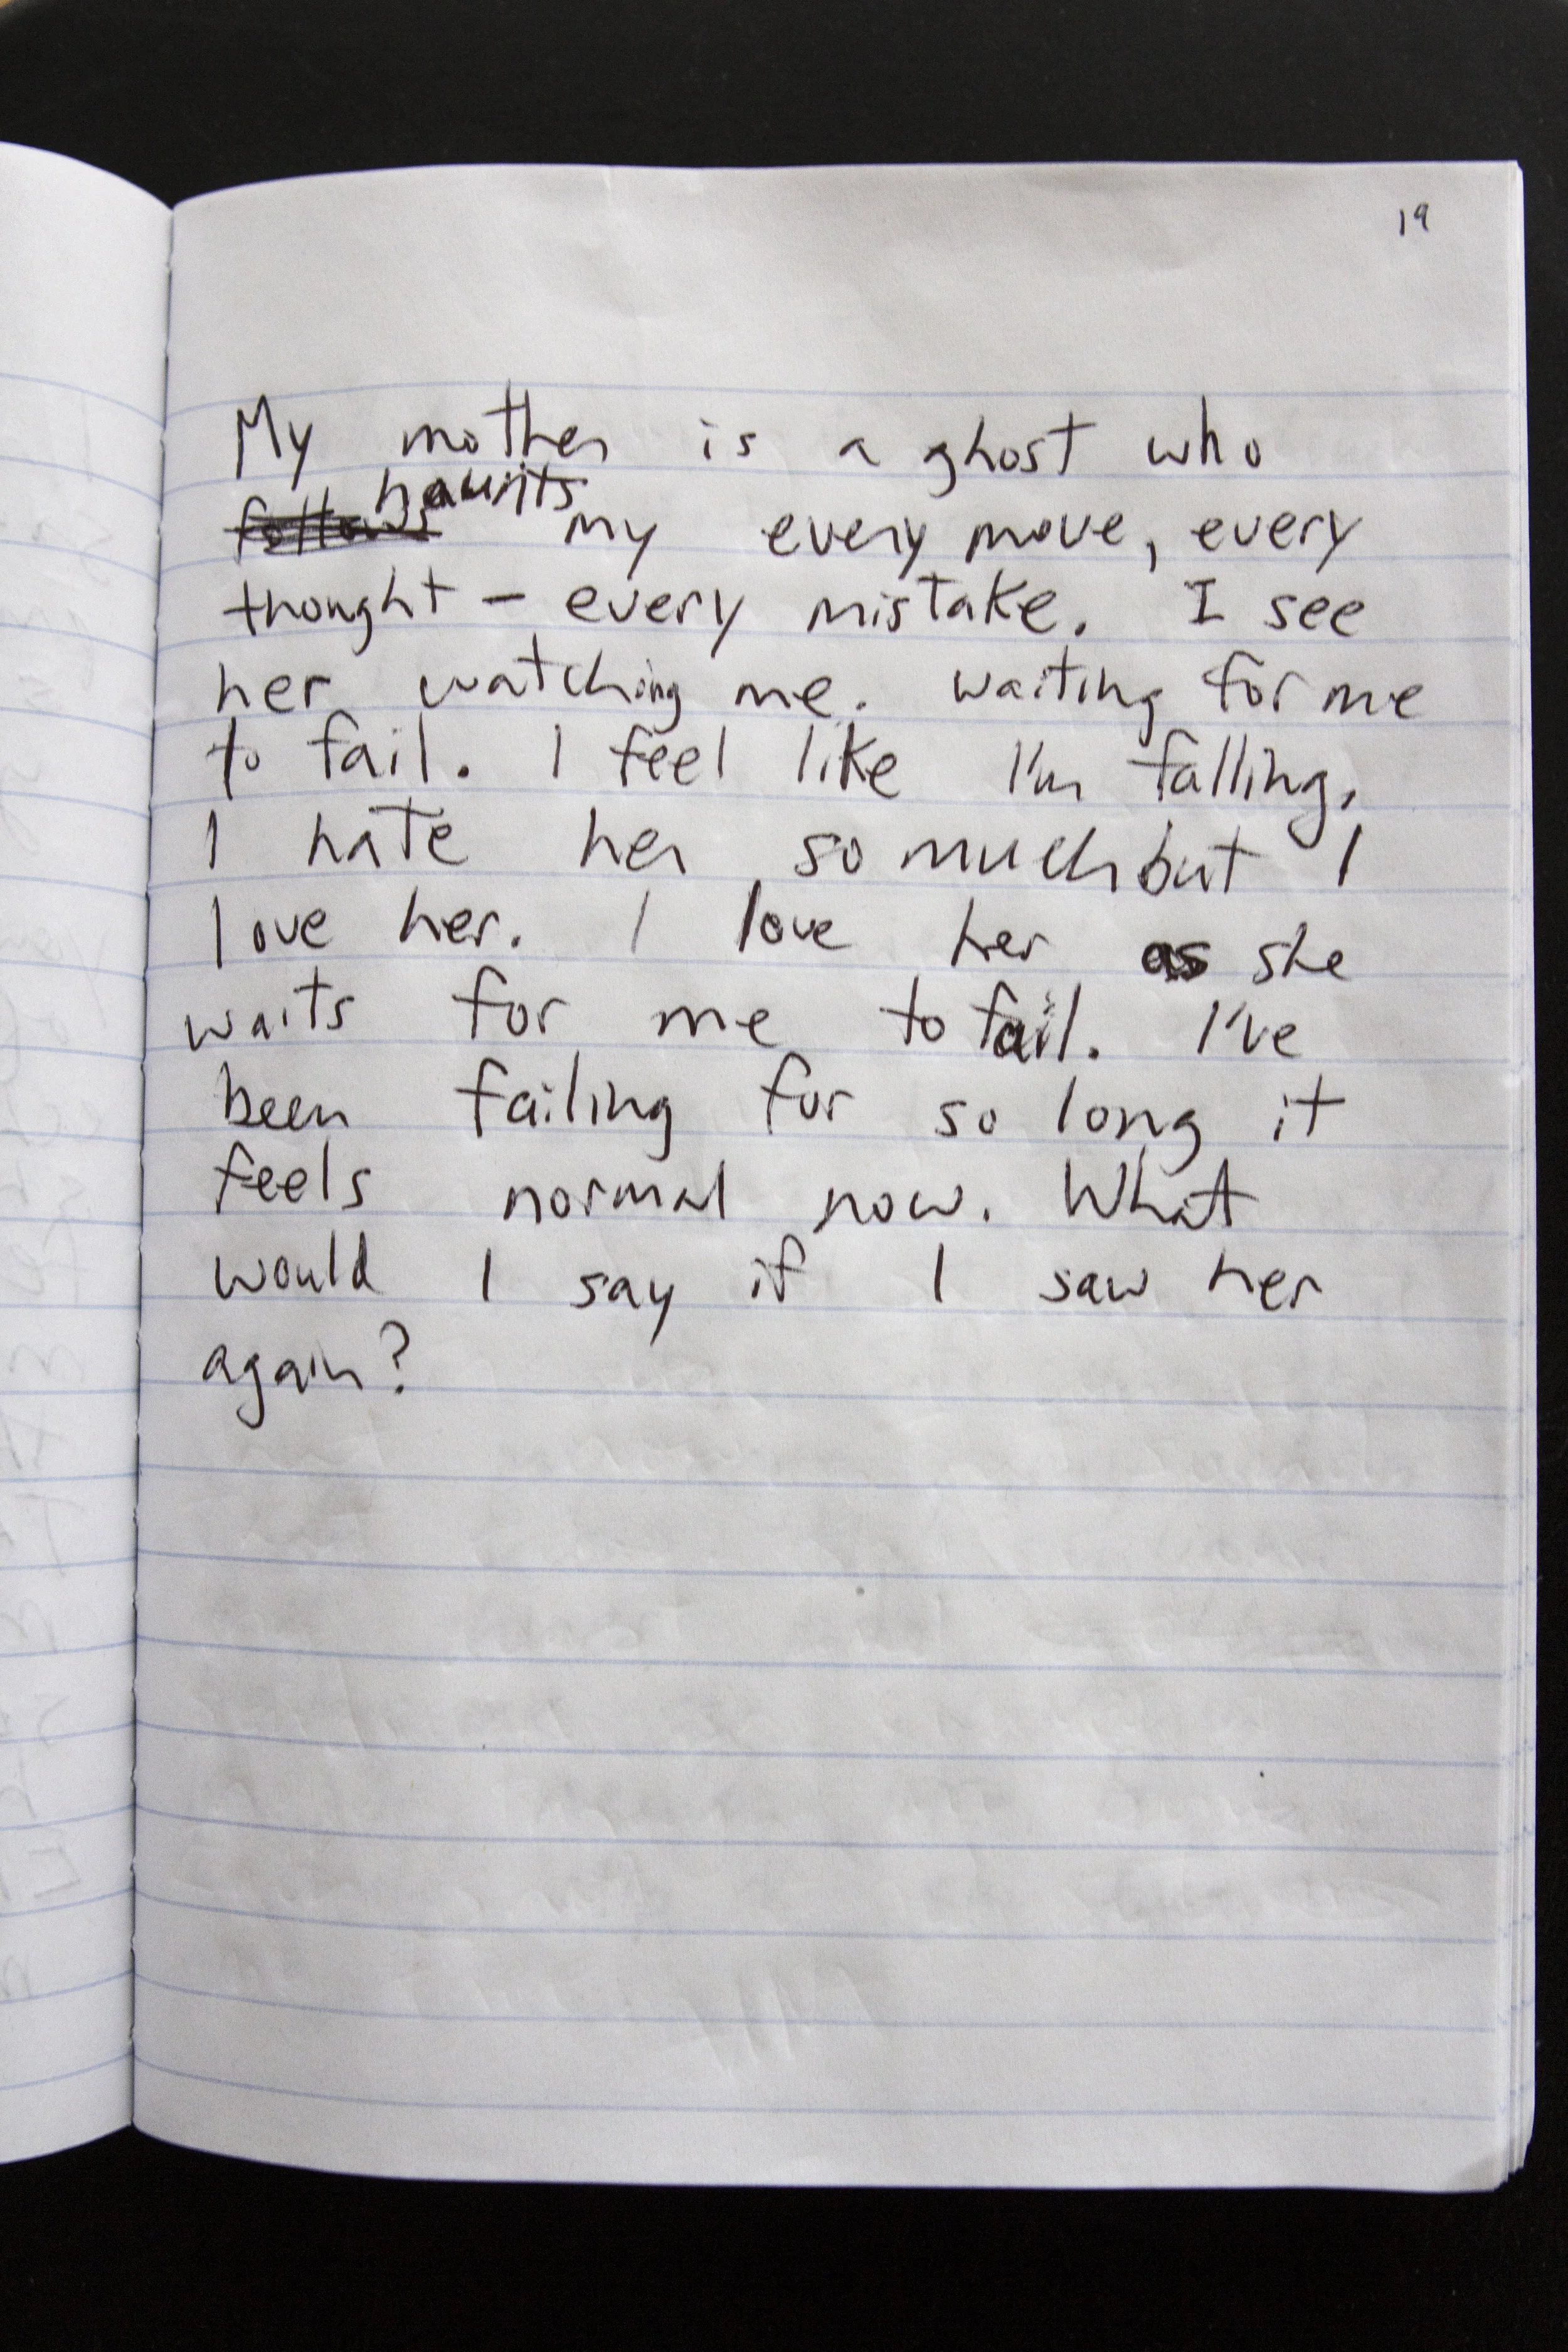 19
My mother is a ghost who
follows haunts my every move, every
thought - every mistake. I see
her watching me. waiting for me
to fail. I feel like I'm falling.
I hate her so much but I
love her. I love her as she
waits for me to fail. I've
been failing for so long it
feels normal now. What
would I say if I saw her
again?